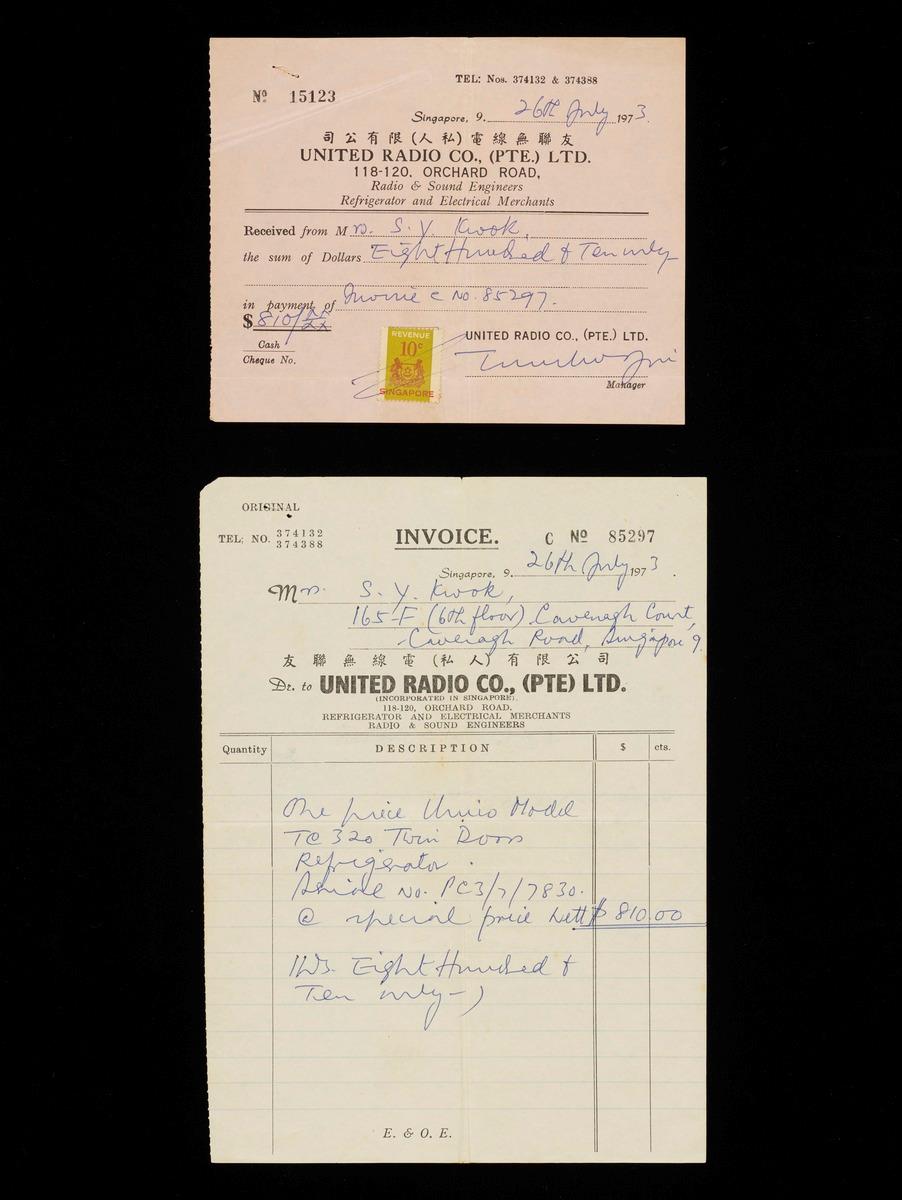 TEL: Nos. 374132 & 374388
Nº 15123
Singapore, 9. 26th July 1973.
司公限有(人私)電線無聯友
UNITED RADIO CO., (PTE.) LTD.
118-120, ORCHARD ROAD,
Radio & Sound Engineers
Refrigerator and Electrical Merchants
Received from Mrs. S. Y. Kwok,
the sum of Dollars Eight Hundred & Ten only
in payment of Invoice C No. 85297.
$ 810/
Cash
Cheque No.
REVENUE
10c
SINGAPORE
UNITED RADIO CO., (PTE.) LTD.
Manager
ORIGINAL
TEL: NO. 374132
374388
INVOICE.
C Nº 85297
Singapore, 9. 26th July 1973.
Mrs. S. Y. Kwok,
165-F (6th floor) Cavenagh Court,
Cavenagh Road, Singapore 9.
友聯無線電(私人)有限公司
Dr. to UNITED RADIO CO., (PTE) LTD.
(INCORPORATED IN SINGAPORE).
118-120, ORCHARD ROAD.
REFRIGERATOR AND ELECTRICAL MERCHANTS
RADIO & SOUND ENGINEERS
Quantity DESCRIPTION $ cts.
One piece Model
TC 320 Twin Doors
Refrigerator.
Serial No. PC3/7/7830.
@ special price nett $ 810.00
Eight Hundred &
Ten only-)
E. & O. E.